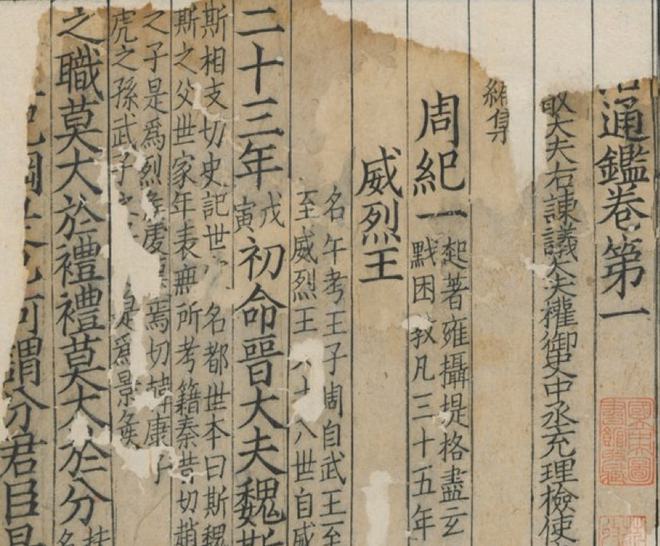 通鑑卷第一
大夫右諫議大夫權御史中丞充理檢使
周紀一
起著雍攝提格盡玄
黓困敦凡三十五年
威烈王
名午考王子周自武王至
至威烈王 八世自威
二十三年
戊
寅
初命晉大夫魏斯
斯相支切史記世 名都世本曰斯魏
斯之父世家年表無所考籍秦昔切趙
之子是爲烈 虔 焉切韓康子
虎之孫武子 是爲景侯
之職莫大於禮禮莫大於分
綱 何謂分君臣是